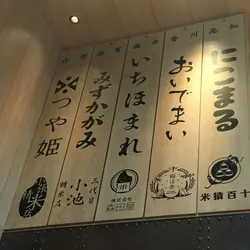 高知
にこまる
米猿百十
香川
おいでまい
福井
いちほまれ
株式会社
森田屋
滋賀
みずかがみ
三代目
小池
精米店
山形
つや姫